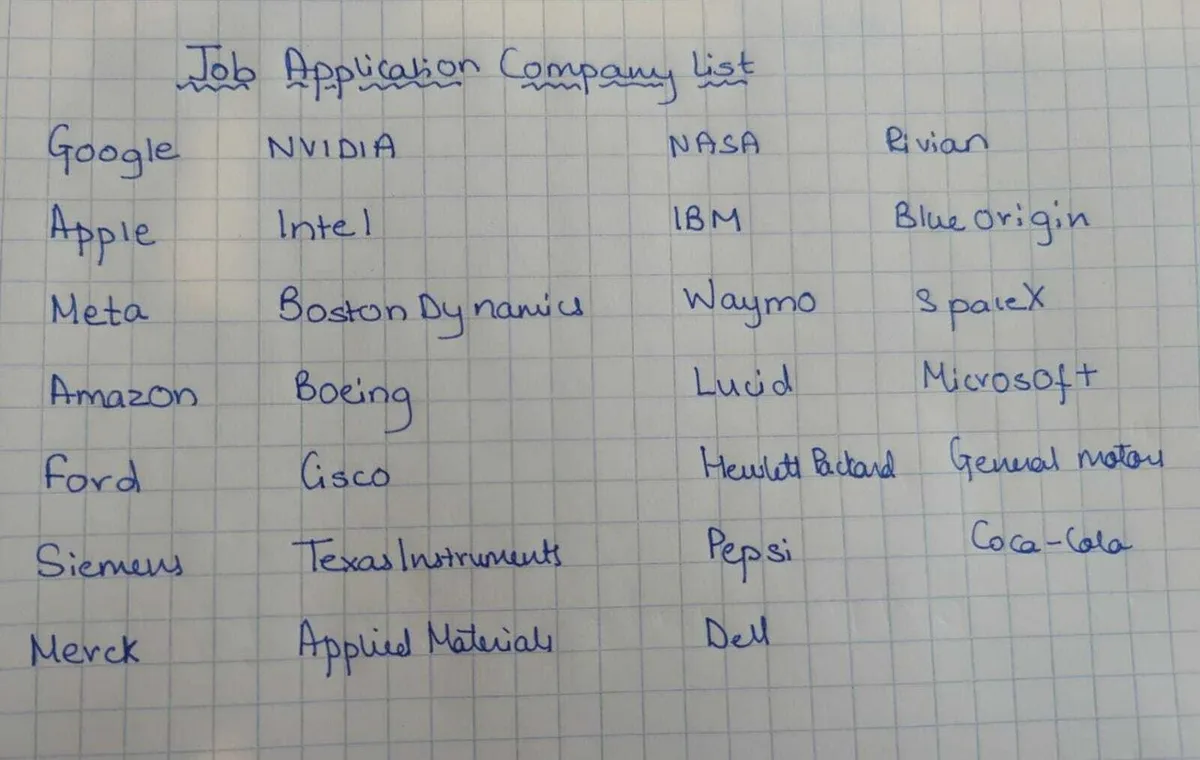 Job Application Company List
Google NVIDIA NASA Rivian
Apple Intel IBM Blue origin
Meta Boston Dynamics Waymo SpaceX
Amazon Boeing Lucid Microsoft
Ford Cisco Hewlett Packard General motors
Siemens Texas Instruments Pepsi Coca-Cola
Merck Applied Materials Dell